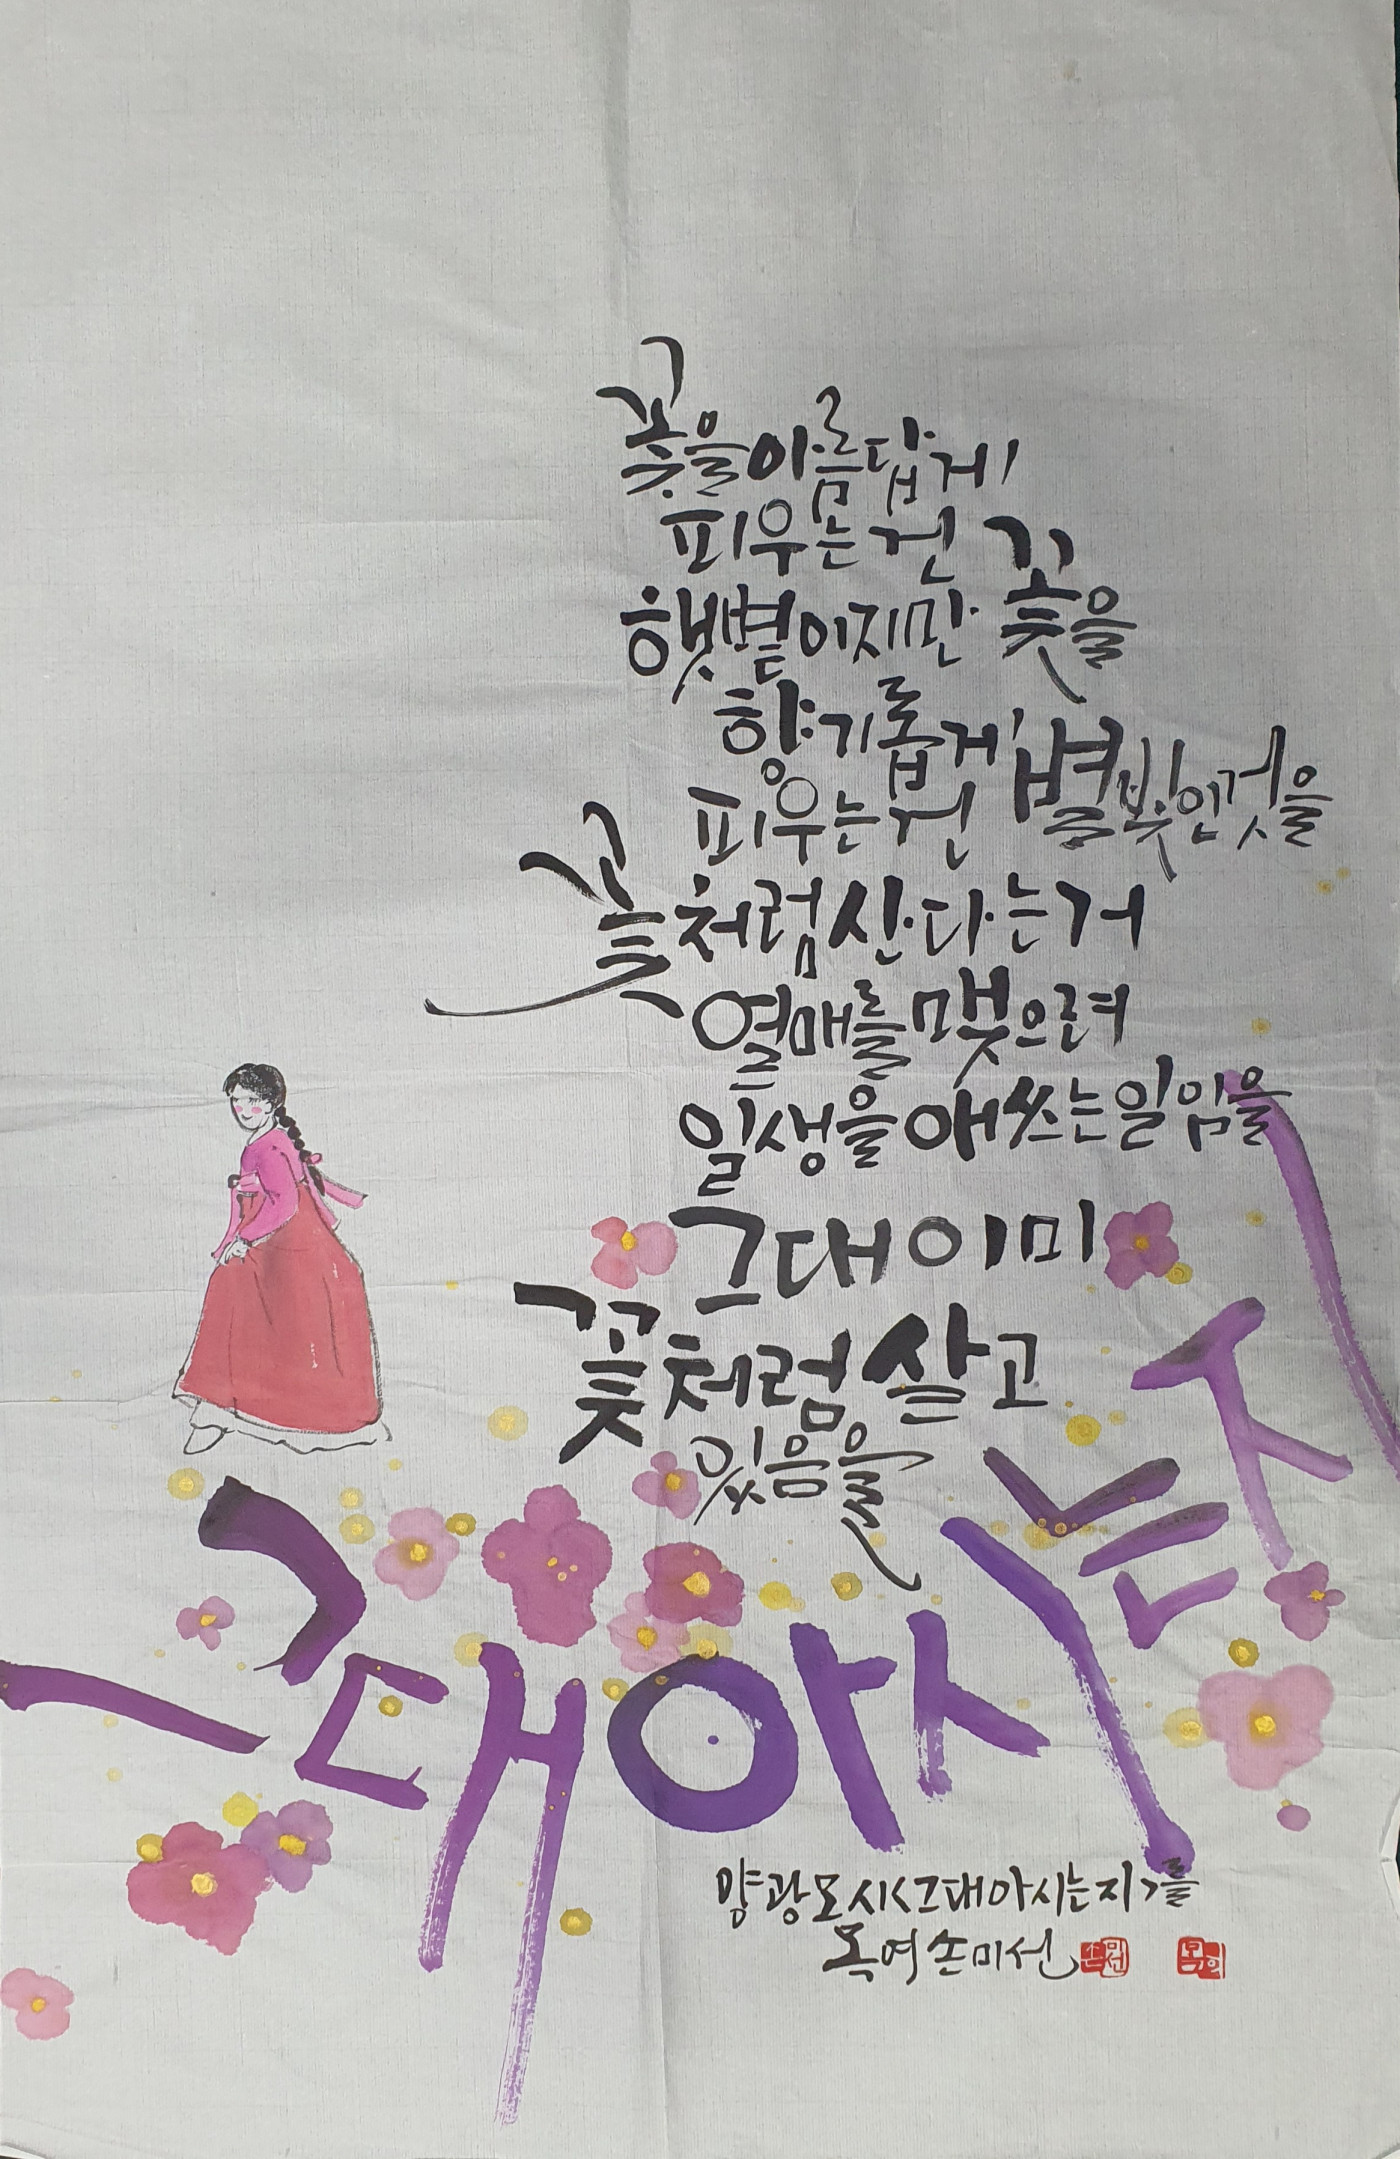 꽃을아름답게
피우는건
햇볕이지만 꽃을
향기롭게
피우는건 별빛인것을
꽃처럼산다는거
열매를맺으려
일생을애쓰는일임을
그대이미
꽃처럼살고
있음을
그대아시는지
양광모시<그대아시는지>를
목여손미선